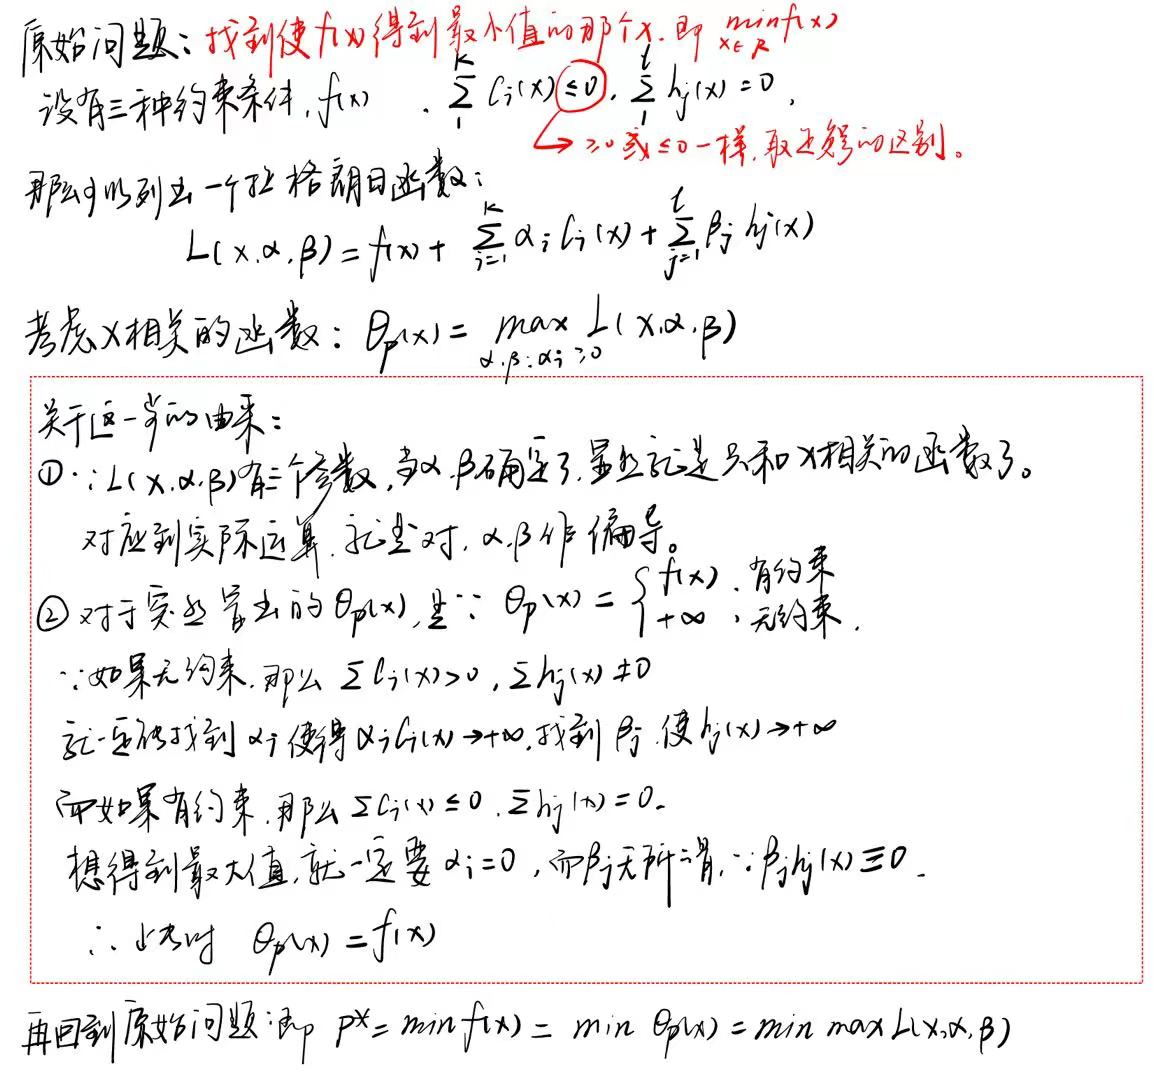 原始问题：找到使f(x)得到最小值的那个x. 即 min f(x)
x∈R
设有三种约束条件, f(x) . ∑₁ᵏ Cᵢ(x) ≤0, ∑₁ˡ hⱼ(x)=0,
→ ≥0或≤0一样, 取正负号的区别。
那么可以列出一个拉格朗日函数：
L(x,α,β) = f(x) + ∑ᵢ₌₁ᵏ αᵢCᵢ(x) + ∑ⱼ₌₁ˡ βⱼhⱼ(x)
考虑x相关的函数： θp(x) = max L(x,α,β)
α,β:αᵢ≥0
关于这一步的由来：
①∵L(x,α,β)有三个参数, 当α,β确定了, 显然就是只和x相关的函数了。
对应到实际运算, 就是对, α,β作偏导。
②对于突然冒出的θp(x), 是∵ θp(x) = { f(x) , 有约束
+∞ , 无约束.
∵如果无约束, 那么 ∑Cᵢ(x)>0, ∑hⱼ(x)≠0
就一定能找到αᵢ使得αᵢCᵢ(x)→+∞, 找到βⱼ使hⱼ(x)→+∞
而如果有约束, 那么 ∑Cᵢ(x)≤0, ∑hⱼ(x)=0.
想得到最大值, 就一定要αᵢ=0, 而βⱼ无所谓, ∵βⱼhⱼ(x)≡0.
∴ 此时 θp(x) = f(x)
再回到原始问题：即 p* = min f(x) = min θp(x) = min max L(x,α,β)